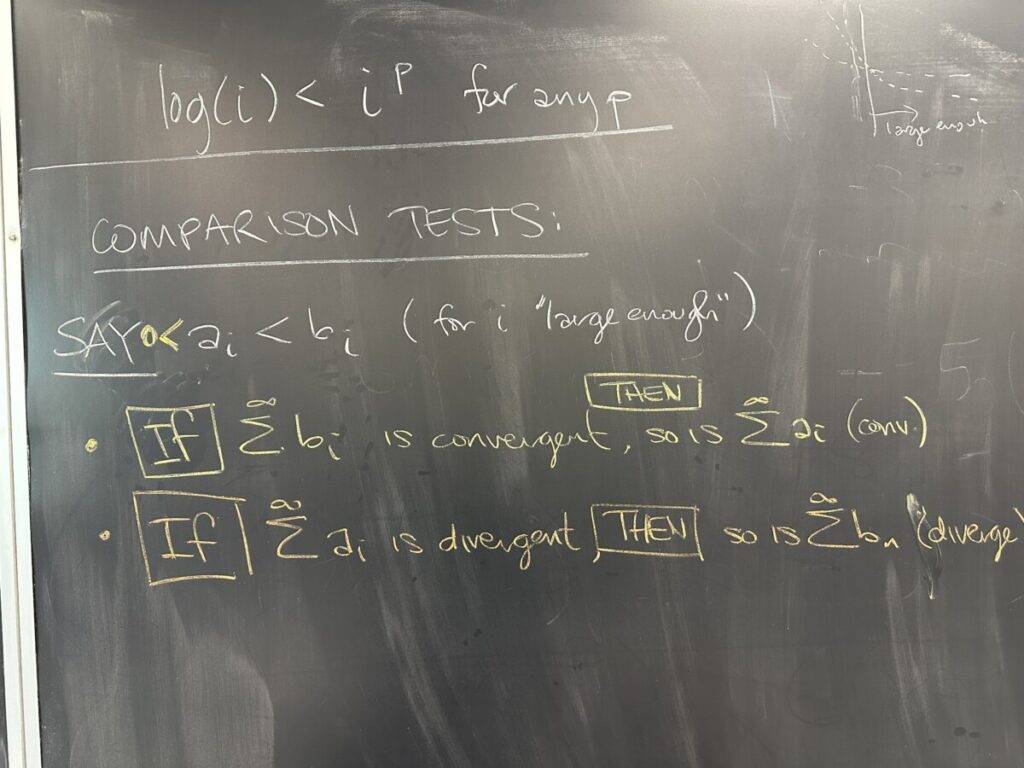 log(i) < i^p for any p
large enough
COMPARISON TESTS:
SAY 0< a_i < b_i (for i "large enough")
THEN
• If ∑^∞ b_i is convergent, so is ∑^∞ a_i (conv.)
• If ∑^∞ a_i is divergent, THEN so is ∑^∞ b_n (diverge)